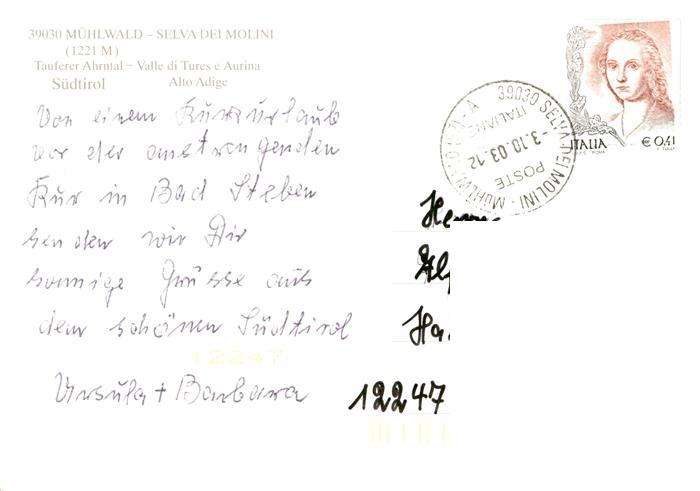 39030 MÜHLWALD – SELVA DEI MOLINI
(1221 M)
Tauferer Ahrntal – Valle di Tures e Aurina
Südtirol Alto Adige
Von einem Kurzurlaub
vor der anstrengenden
Kur in Bad Steben
senden wir Dir
sonnige Grüsse aus
dem schönen Südtirol
Ursula + Barbara
39030 SELVA DEI MOLINI - MÜHLWALD
POSTE ITALIANE
3.10.03.12
ITALIA € 0,41
Ha
12247
12247